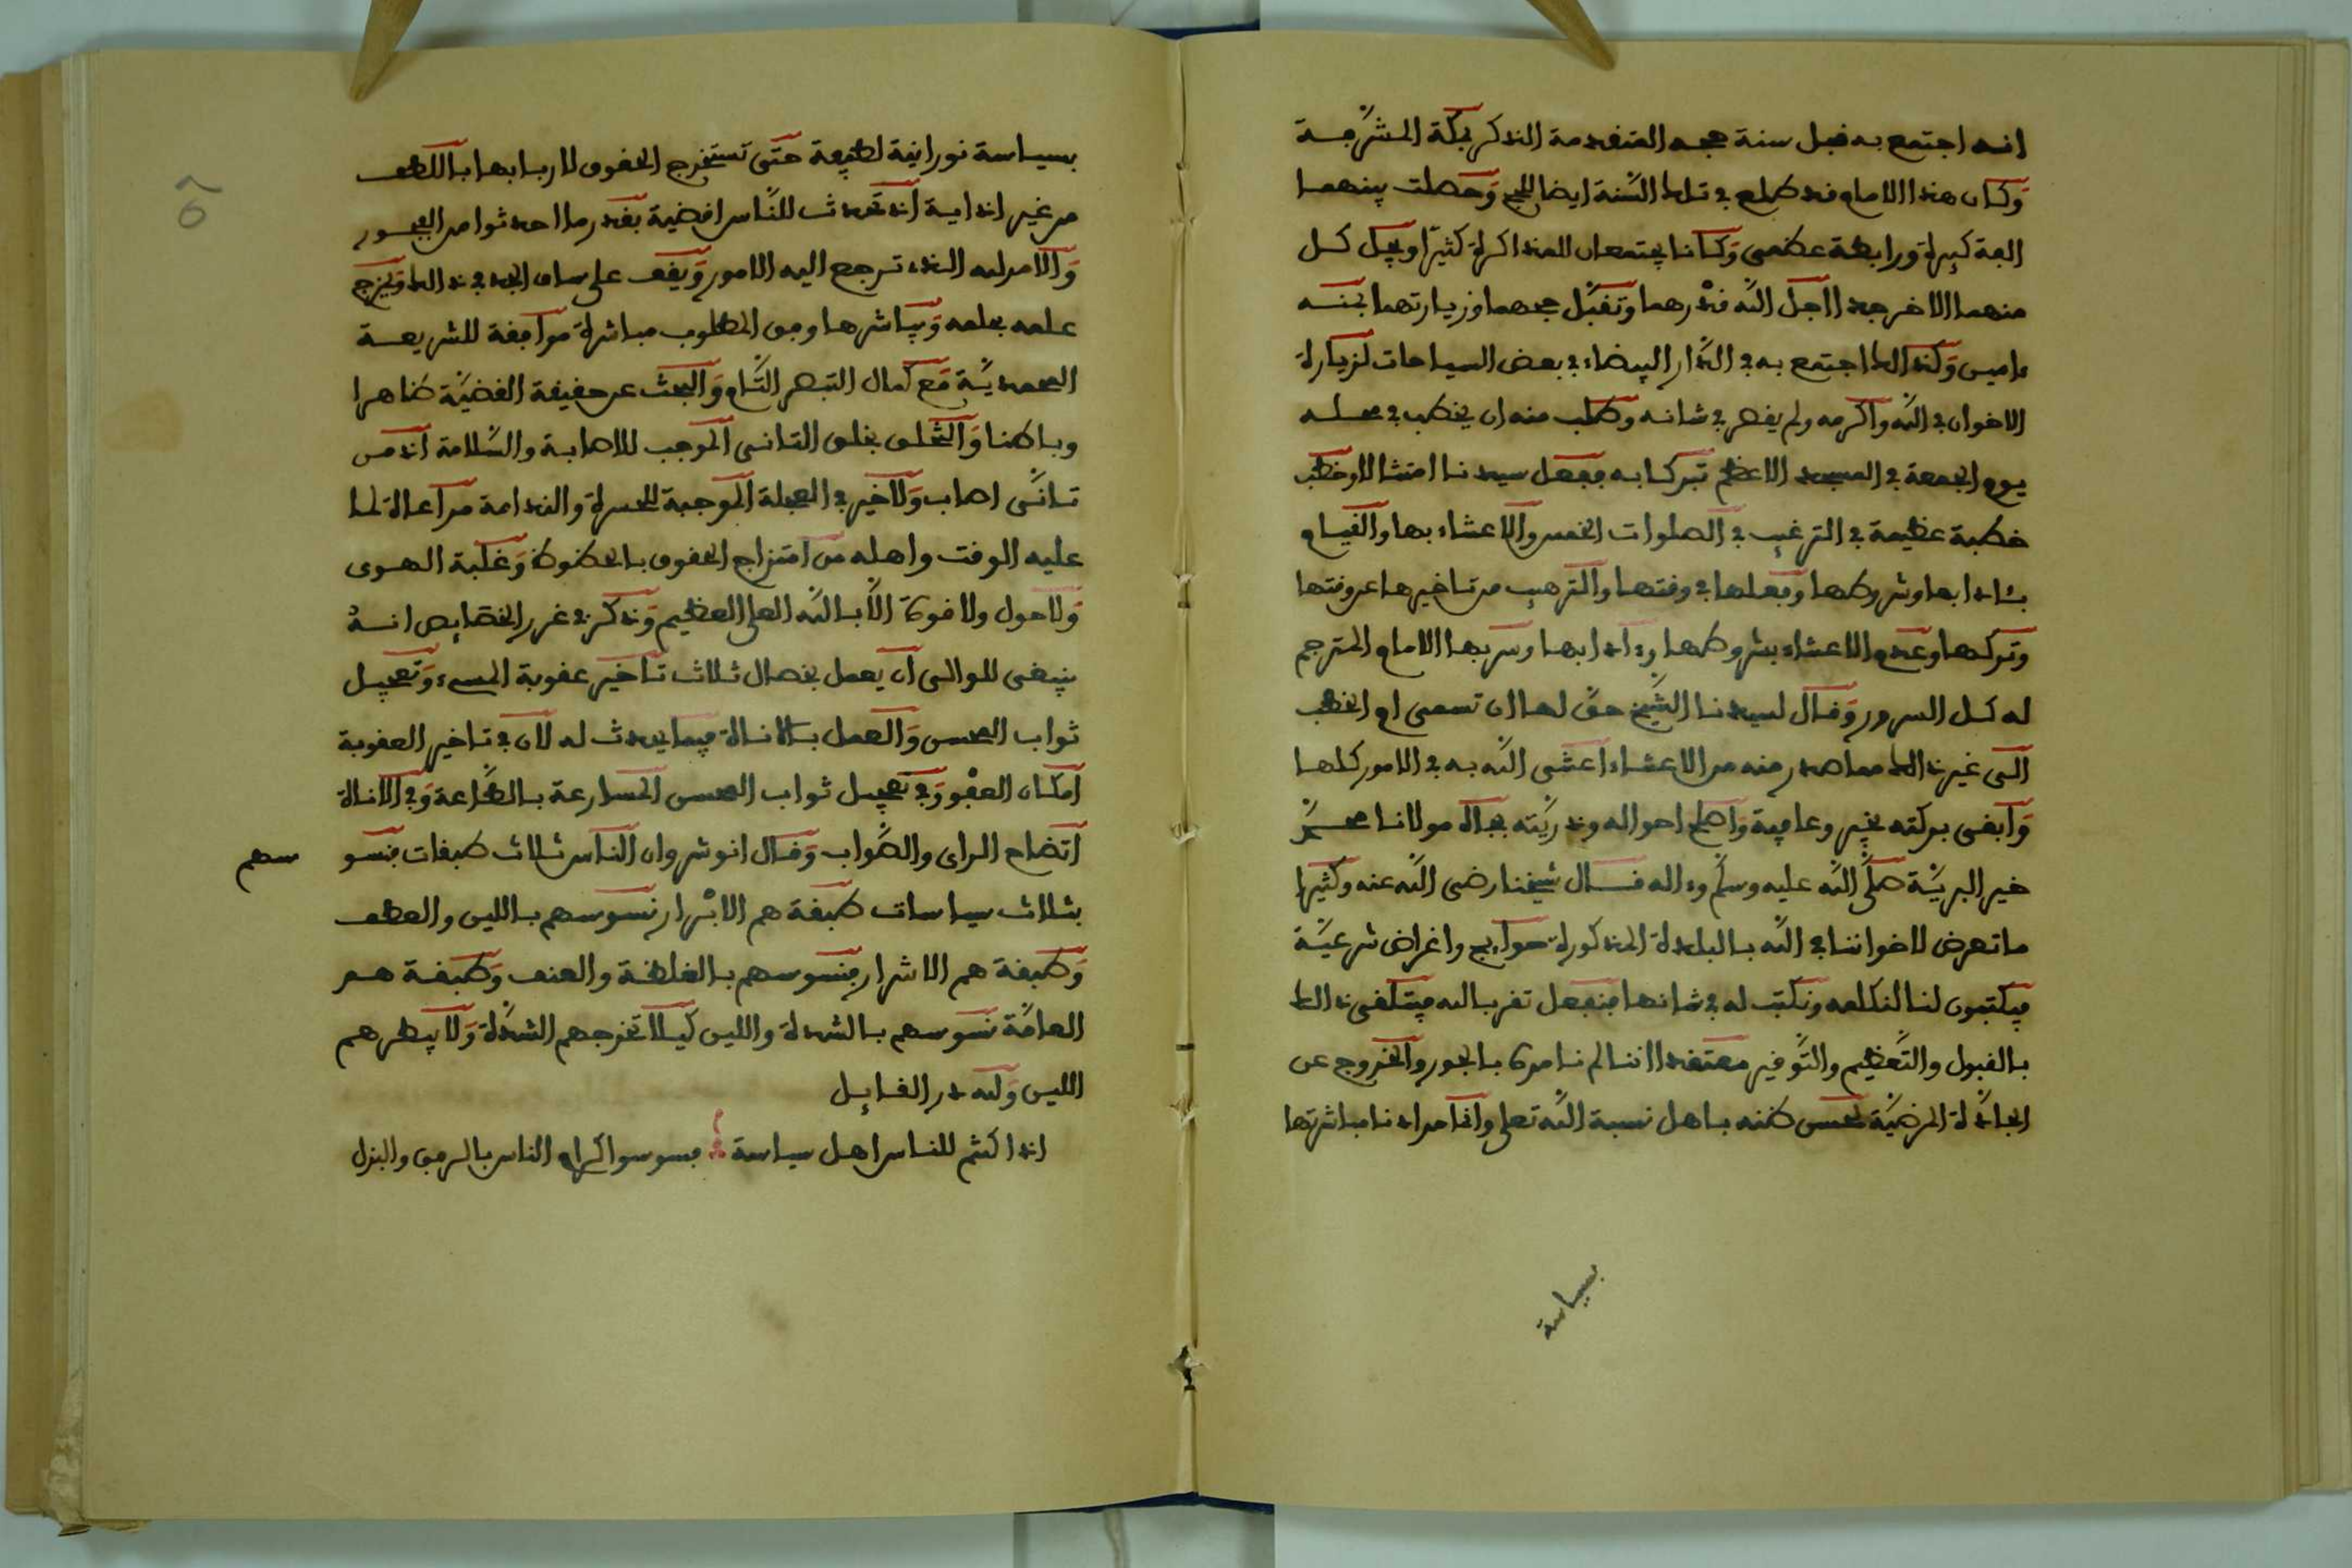 انه اجتمع به قبل سنة حجه المتقدمة الذكر بمكة المشرفة
وكان هذا الامام قد طلع في تلك السنة ايضا للحج وحصلت بينهما
الفة كبيرة ورابطة عظمى وكانا يجتمعان للمذاكرة كثيرا ويجل كل
منهما الاخر جدا اجل الله قدرهما وتقبل حجهما وزيارتهما بمنه
ءامين وكذالك اجتمع به في الدار البيضاء في بعض السياحات لزيارة
الاخوان في الله واكرمه ولم يقصر في شانه وطلب منه ان يخطب في محله
يوم الجمعة في المسجد الاعظم تبركا به ففعل سيدنا امتثالا وخطب
خطبة عظيمة في الترغيب في الصلوات الخمس والاعتناء بها والقيام
بئادابها وشروطها وفعلها في وقتها والترهيب من تاخيرها عن وقتها
وتركها وعدم الاعتناء بشروطها وءادابها وسر بها الامام المترجم
له كل السرور وقال لسيدنا الشيخ حق لها ان تسمى ام الخطب
الى غير ذالك مما صدر منه من الاعتناء اعتنى الله به في الامور كلها
وابقى بركته بخير وعافية واصلح احواله وذريته بجاه مولانا محمد
خير البرية صلى الله عليه وسلم وءاله قال شيخنا رضي الله عنه وكثيرا
ما تعرض لاخواننا في الله بالبلدة المذكورة حوايج واغراض شرعية
فيكتبون لنا لنكلمه ونكتب له في شانها فنفعل تقربا لله فيتلقى ذالك
بالقبول والتعظيم والتوقير معتقدا اننا لم نامره بالجور والخروج عن
الجادة المرضية لحسن ظنه باهل نسبة الله تعلى وانما مرادنا مباشرتها
بسياسة
بسياسة نورانية لطيفة حتى تستخرج الحقوق لاربابها باللطف
من غير اذاية اذ تحدث للناس اقضية بقدر ما احدثوا من الفجور
والامر لله الذي ترجع اليه الامور ويقف على ساق الجد في ذالك ويخرج
علمه بحلمه ويباشرها وفق المطلوب مباشرة موافقة للشريعة
المحمدية مع كمال التبصر التام والبحث عن حقيقة القضية ظاهرا
وباطنا والتخلق بخلق التانى الموجب للاصابة والسلامة اذ من
تانى اصاب ولا خير في العجلة الموجبة للحسرة والندامة مراعاة لما
عليه الوقت واهله من امتزاج الحقوق بالحظوظ وغلبة الهوى
ولا حول ولا قوة الا بالله العلى العظيم وذكر في غرر الخصايص انه
ينبغى للوالى ان يعمل بخصال ثلاث تاخير عقوبة المسىء وتعجيل
ثواب المحسن والعمل بالاناة فيما يحدث له لان في تاخير العقوبة
امكان العفو وفي تعجيل ثواب المحسن المسارعة بالطاعة وفي الاناة
اتضاح الراى والصواب وقال انوشروان الناس ثلاث طبقات فنسو
سهم
بثلاث سياسات طبقة هم الابرار نسوسهم باللين والعطف
وطبقة هم الاشرار فنسوسهم بالغلظة والعنف وطبقة هم
العامة نسوسهم بالشدة واللين كيلا تخرجهم الشدة ولا يبطرهم
اللين ولله در القايل
اذا كنتم للناس اهل سياسة فسوسوا كرام الناس بالرفق والبذل